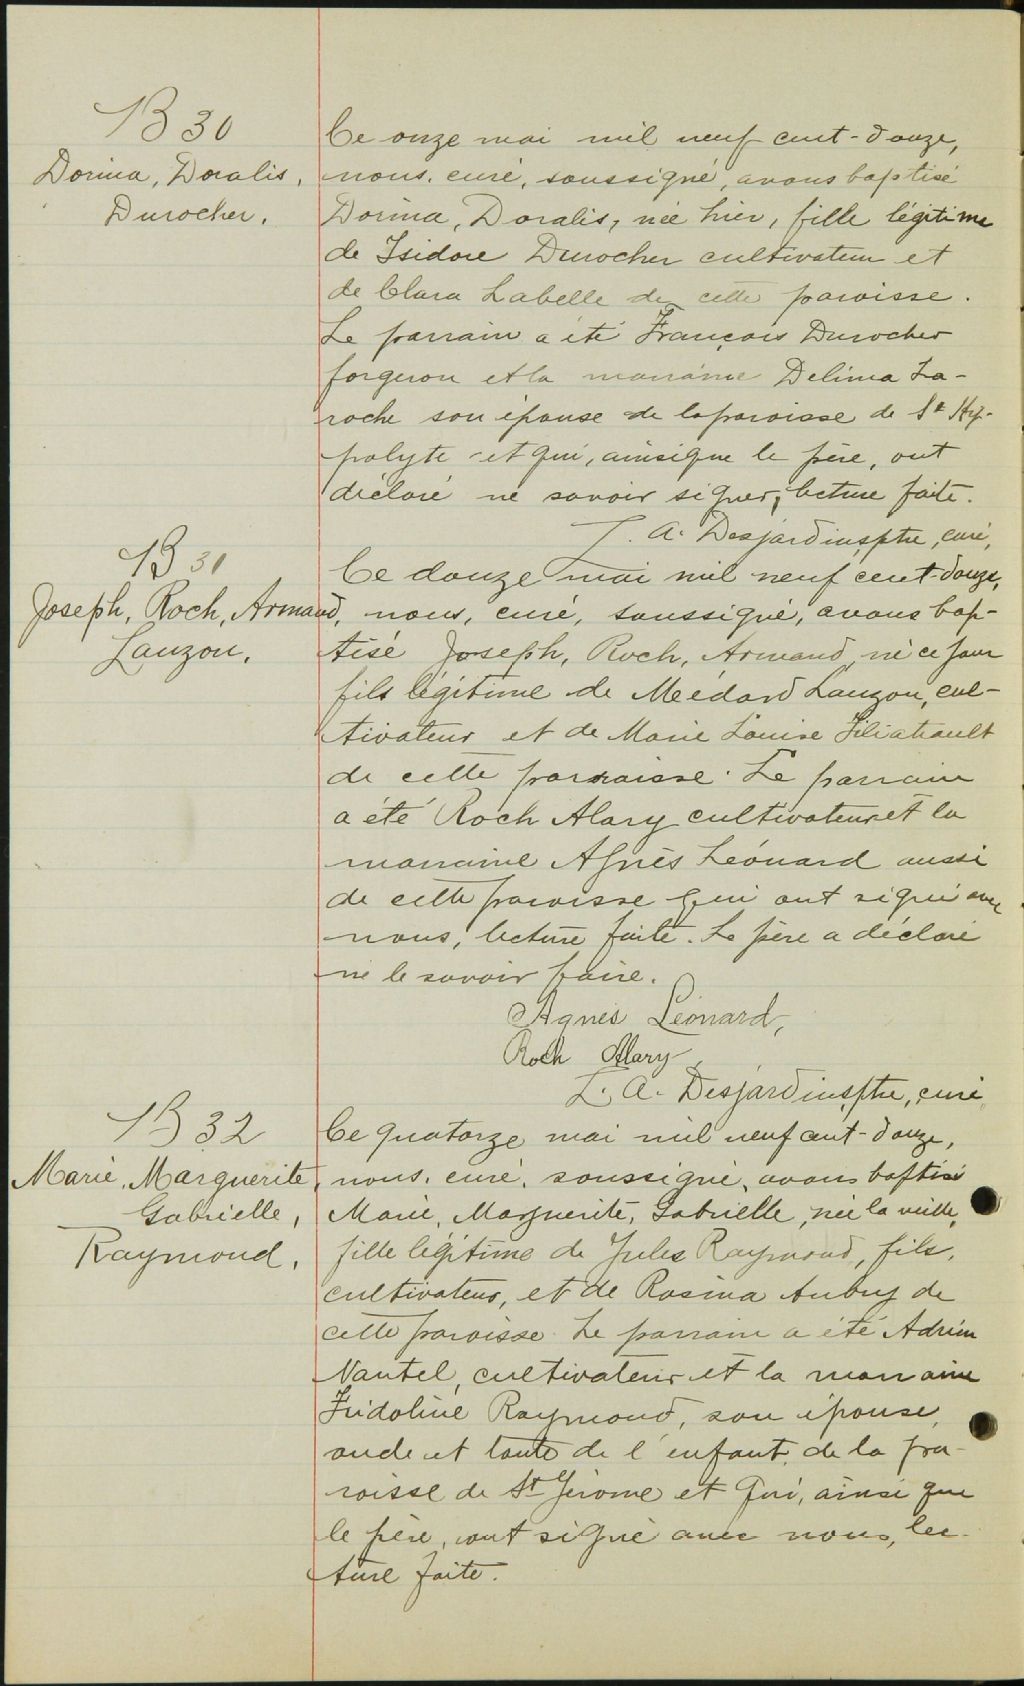 B 30
Dorina, Doralis,
Durocher.
Ce onze mai mil neuf cent-douze,
nous, curé, soussigné, avons baptisé
Dorina, Doralis, née hier, fille légitime
de Isidore Durocher cultivateur et
de Clara Labelle de cette paroisse.
Le parrain a été François Durocher
forgeron et la marraine Delima La-
roche son épouse de la paroisse de St Hip-
polyte et qui, ainsi que le père, ont
déclaré ne savoir signer, lecture faite.
L. A. Desjardins, ptre, curé,
B 31
Joseph, Roch, Armand,
Lauzon.
Ce douze mai mil neuf cent-douze,
nous, curé, soussigné, avons bap-
tisé Joseph, Roch, Armand, né ce jour
fils légitime de Médard Lauzon, cul-
tivateur et de Marie Louise Filiatrault
de cette parroisse. Le parrain
a été Roch Alary cultivateur et la
marraine Agnès Léonard aussi
de cette paroisse qui ont signé avec
nous, lecture faite. Le père a déclaré
ne le savoir faire.
Agnes Léonard,
Roch Alary,
L. A. Desjardins, ptre, curé,
B 32
Marie, Marguerite,
Gabrielle,
Raymond.
Ce quatorze mai mil neuf cent-douze,
nous, curé, soussigné, avons baptisé
Marie, Marguerite, Gabrielle, née la veille,
fille légitime de Jules Raymond, fils,
cultivateur, et de Rosina Aubry de
cette paroisse. Le parrain a été Adrien
Nantel, cultivateur et la marraine
Fridoline Raymond, son épouse,
oncle et tante de l'enfant, de la pa-
roisse de St Jérome et qui, ainsi que
le père, ont signé avec nous, lec-
ture faite.